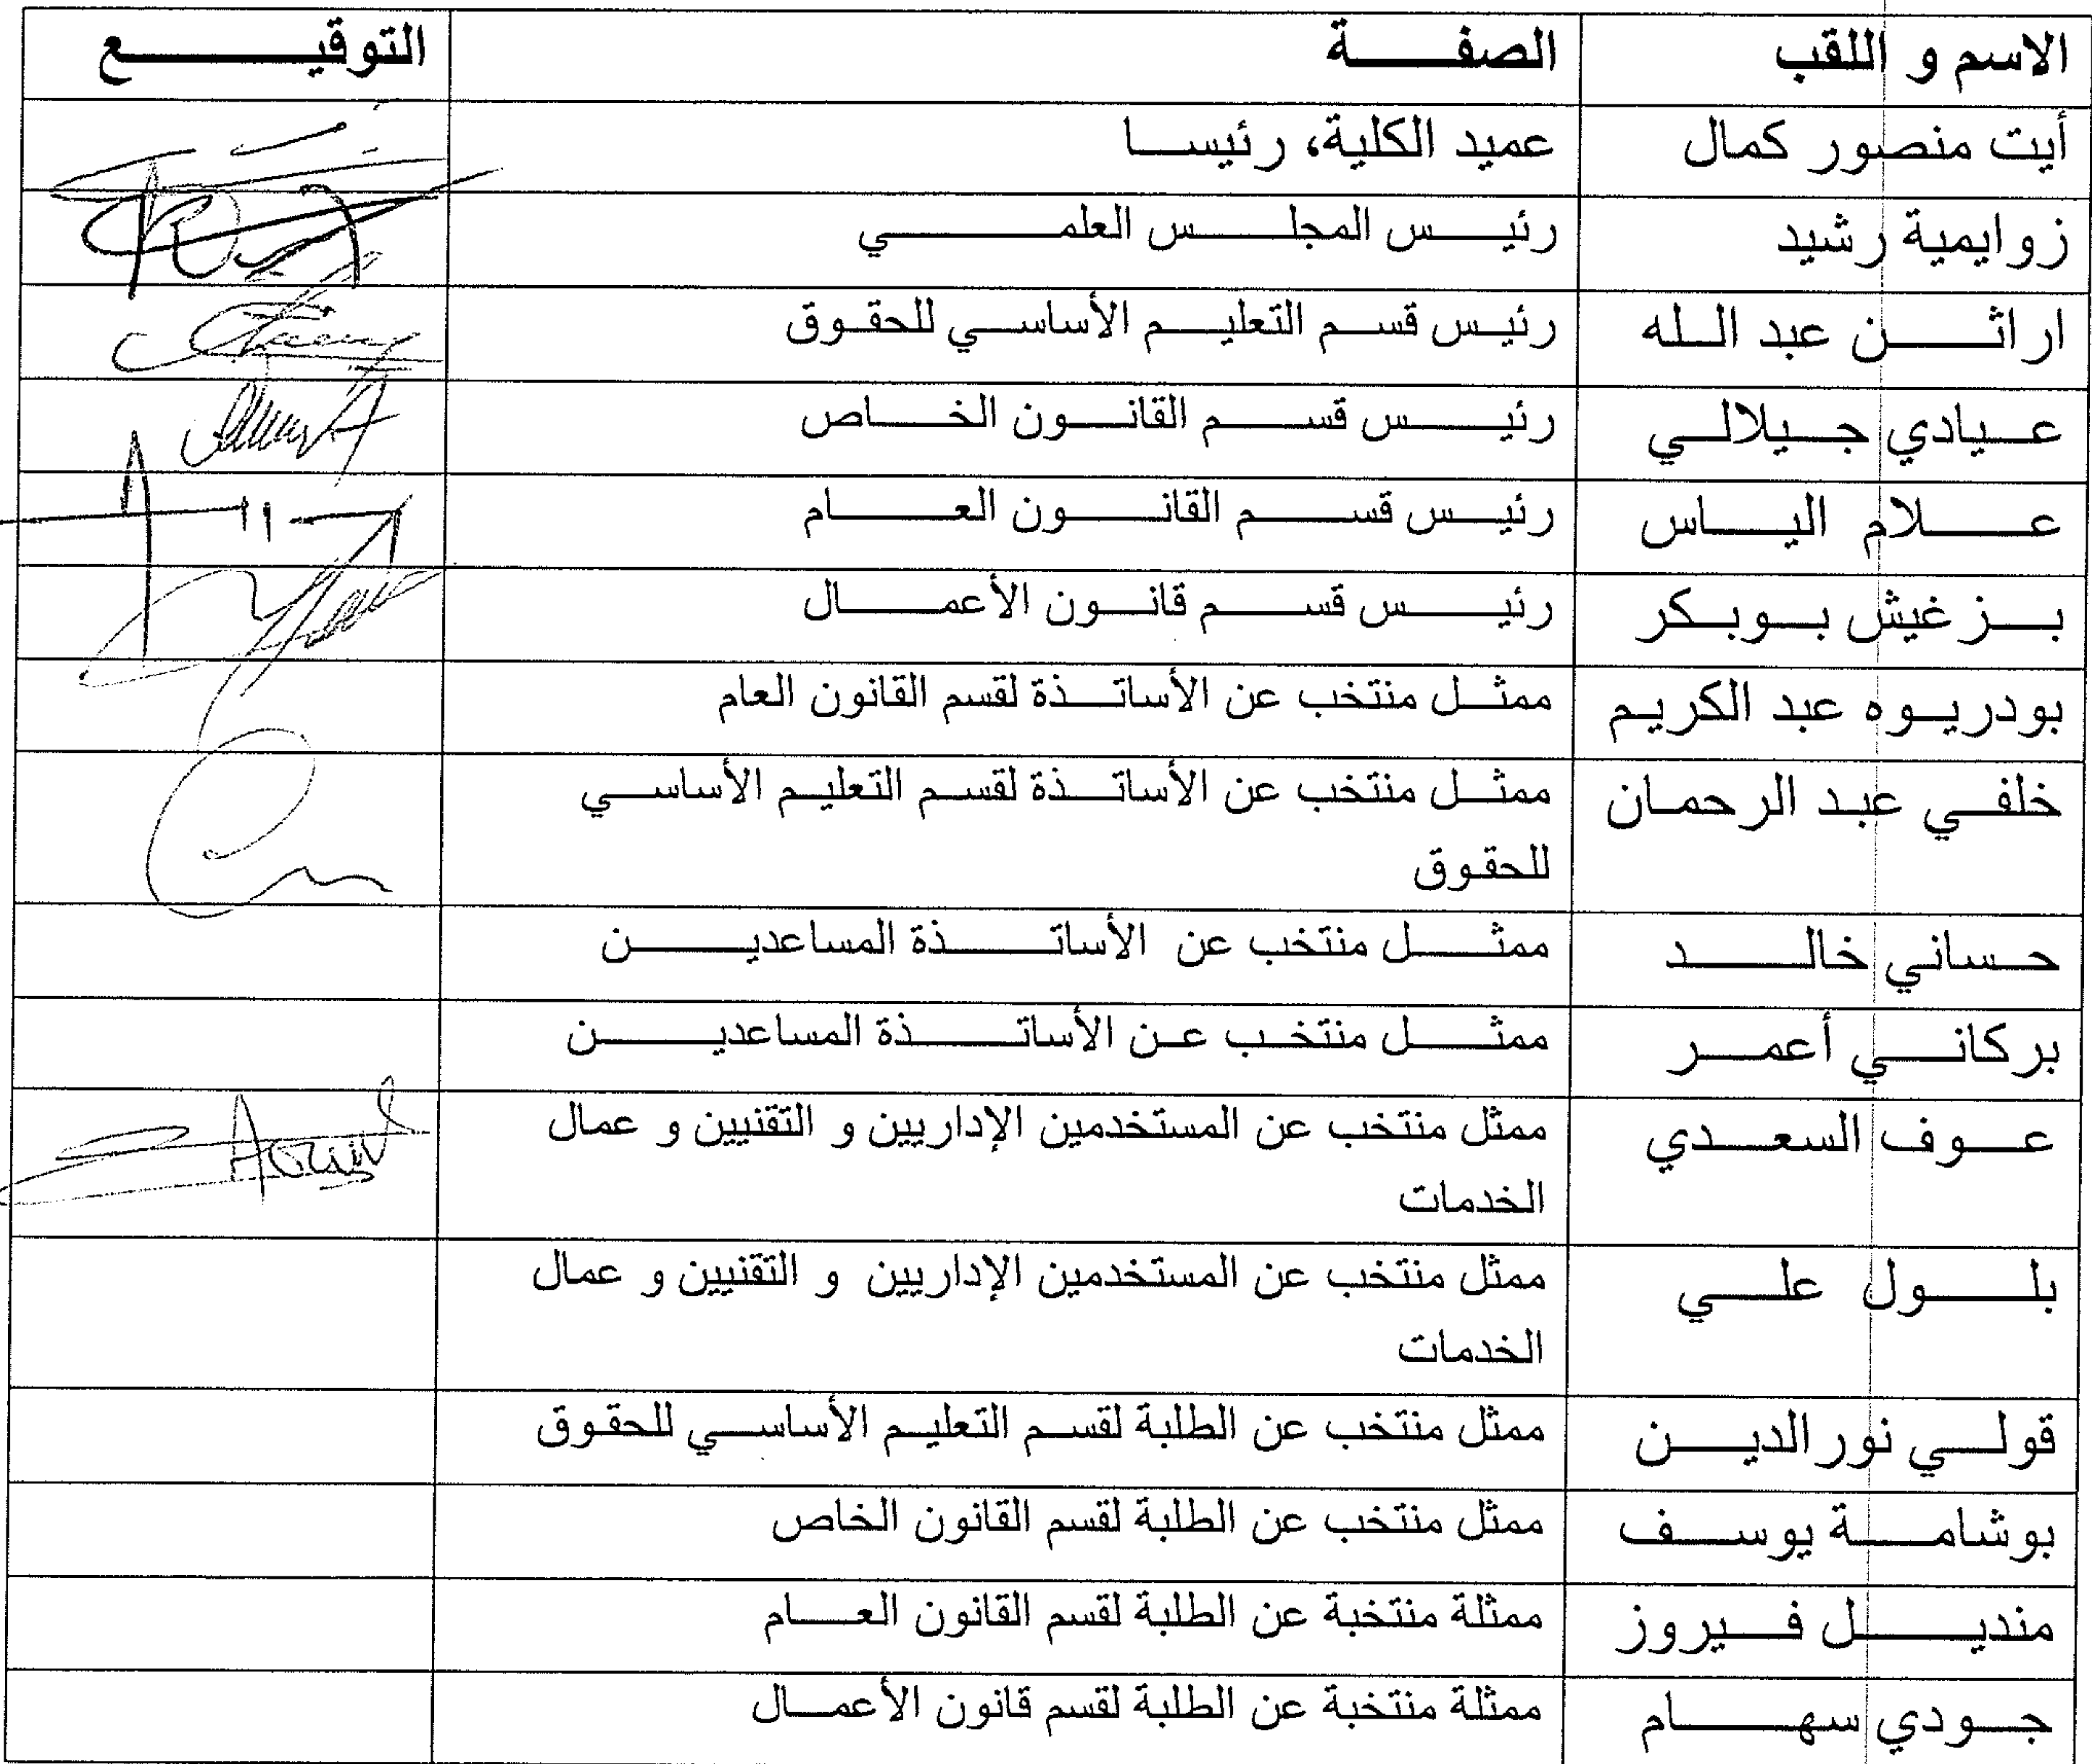 الاسم و اللقب الصفة التوقيع
أيت منصور كمال عميد الكلية، رئيسا
زوايمية رشيد رئيس المجلس العلمي
اراثن عبد الله رئيس قسم التعليم الأساسي للحقوق
عيادي جيلالي رئيس قسم القانون الخاص
علام الياس رئيس قسم القانون العام
بزغيش بوبكر رئيس قسم قانون الأعمال
بودريوه عبد الكريم ممثل منتخب عن الأساتذة لقسم القانون العام
خلفي عبد الرحمان ممثل منتخب عن الأساتذة لقسم التعليم الأساسي
للحقوق
حساني خالد ممثل منتخب عن الأساتذة المساعدين
بركاني أعمر ممثل منتخب عن الأساتذة المساعدين
عوف السعدي ممثل منتخب عن المستخدمين الإداريين و التقنيين و عمال
الخدمات
بلول علي ممثل منتخب عن المستخدمين الإداريين و التقنيين و عمال
الخدمات
قولي نور الدين ممثل منتخب عن الطلبة لقسم التعليم الأساسي للحقوق
بوشامة يوسف ممثل منتخب عن الطلبة لقسم القانون الخاص
منديل فيروز ممثلة منتخبة عن الطلبة لقسم القانون العام
جودي سهام ممثلة منتخبة عن الطلبة لقسم قانون الأعمال